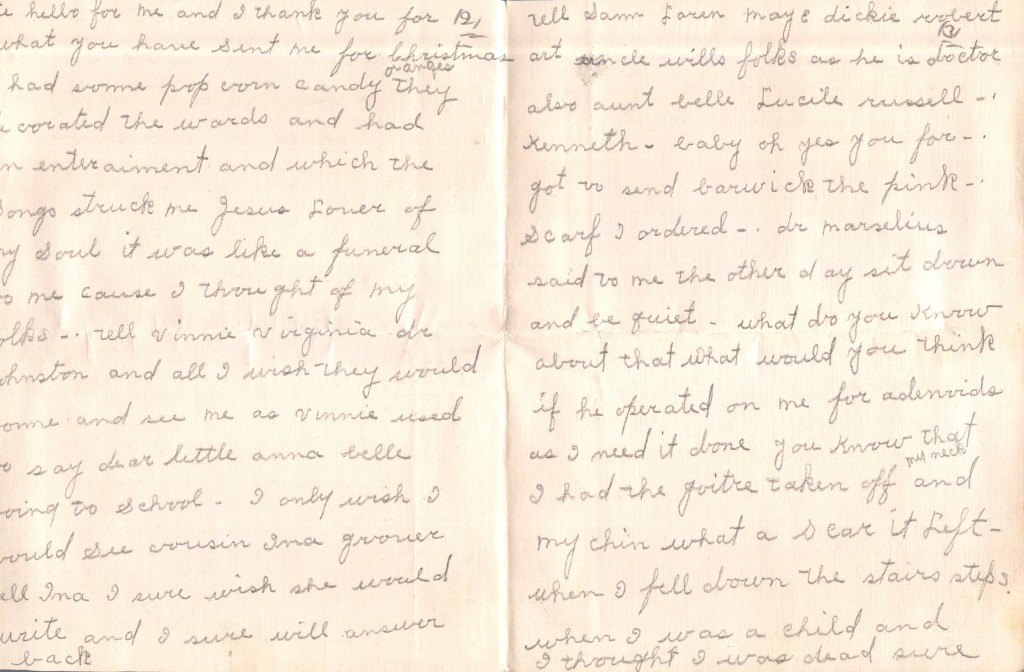 hello for me and I thank you for 12,
what you have sent me for Christmas
oranges
had some pop corn candy they
corated the wards and had
n enteraiment and which the
songs struck me Jesus Lover of
my Soul it was like a funeral
o me cause I thought of my
olks -. tell vinnie virginia dr
ohnston and all I wish they would
come and see me as vinnie used
o say dear little anna belle
oing to School - I only wish I
ould see cousin Ina grover
ell Ina I sure wish she would
write and I sure will answer
back
tell Sam Loren maye dickie robert
13,
art uncle wills folks as he is doctor
also aunt belle Lucile russell -.
Kenneth - baby oh yes you for -.
got to send barwick the pink -.
Scarf I ordered -. dr marselius
said to me the other day sit down
and be quiet - what do you know
about that what would you think
if he operated on me for adenoids
as I need it done you know that
my neck
I had the goitre taken off and
my chin what a scar it Left -
when I fell down the stairs steps.
when I was a child and
I thought I was dead sure